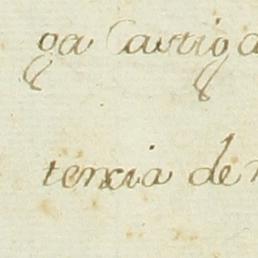 ga Castiga
tencia de